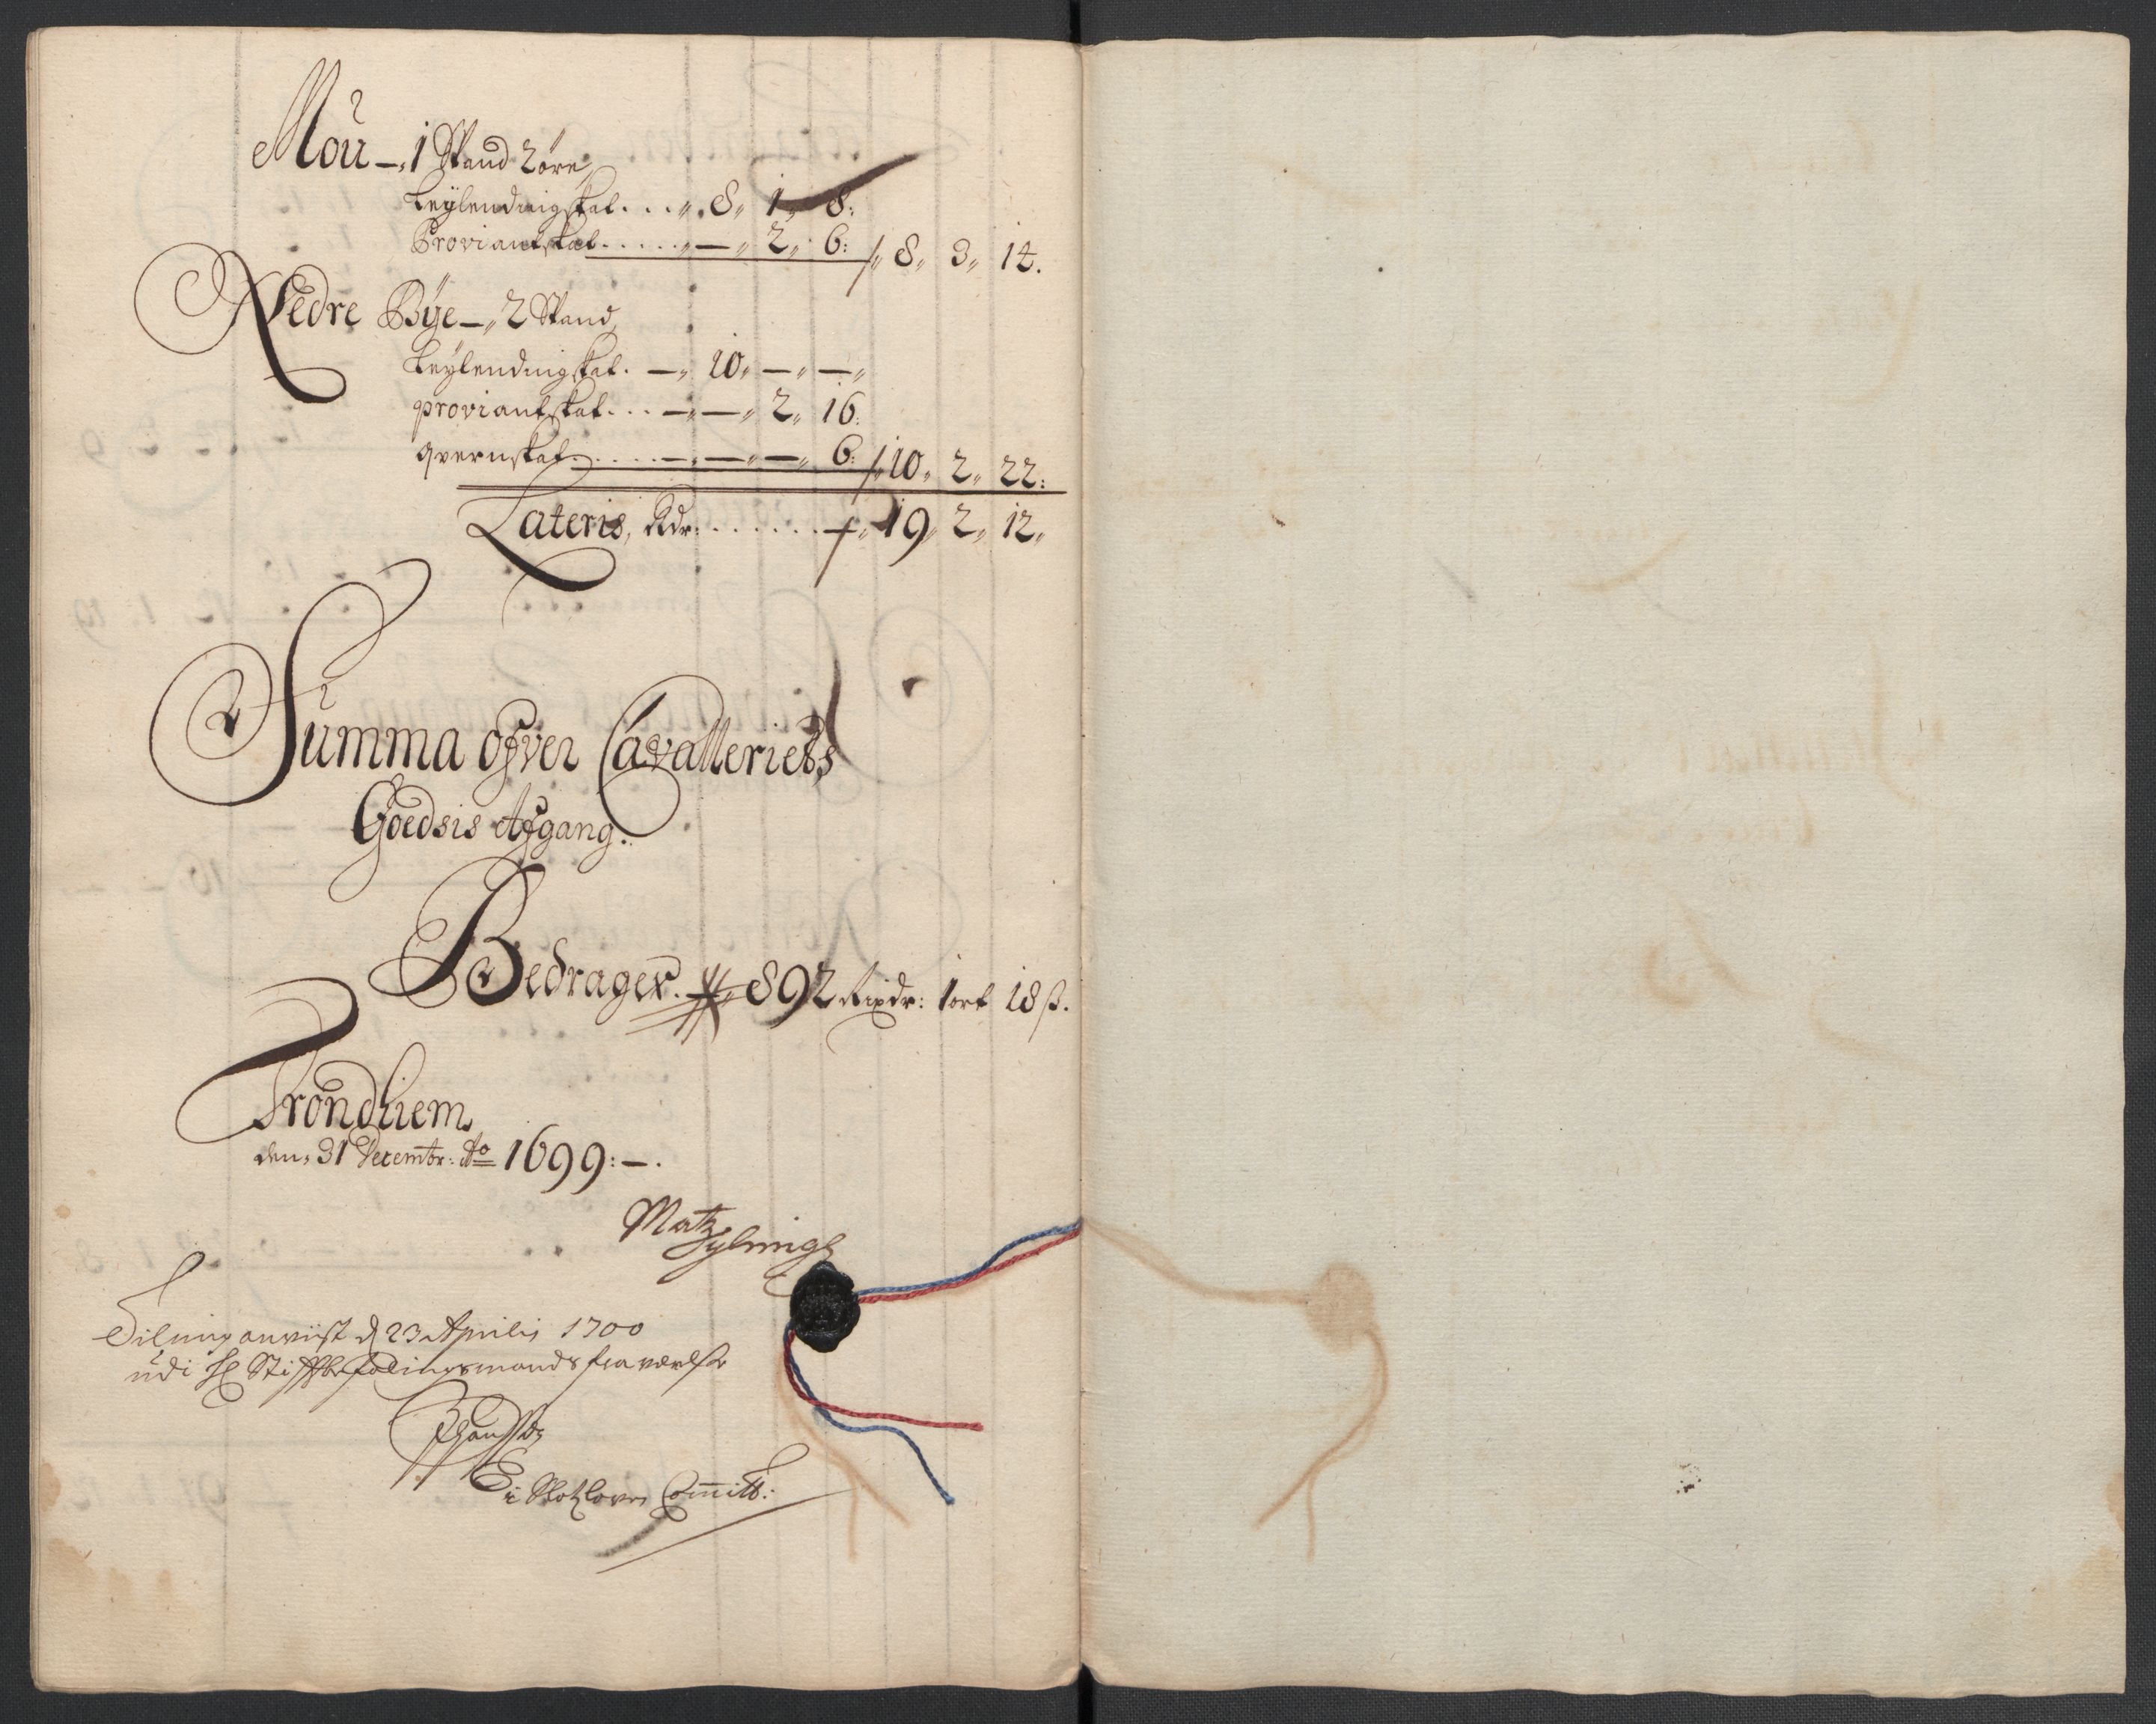 Moü –„ 1 Spand 2 øre
Leylendingskat . . . „ 8„ 1„ 8:
Proviantskat . . . . . „ — „ 2„ 6: /„ 8„ 3„ 14.
Nedre Bÿe –„ 2 Spand
Leylendingskat. —„ 10„ —„ —„
proviantskat . . . —„ —„ 2„ 16:
qvernskat . . . . —„ —„ —„ 6: /„ 10„ 2„ 22:
Lateris, Rdr: . . . . . . . „ 19„ 2„ 12„
Sümma ofver Cavalleriets
Goedsis Afgang.
Bedrager. „ 892 Rixdr: 1 ort 18 ß.
Trondhiem
den„ 31 Decembr: Ao 1699:–.
Matz
anviist d 23 Aprilis 1700
udi H Stifftbefalingsmands fraværelse
i Slotzlovens Committ: